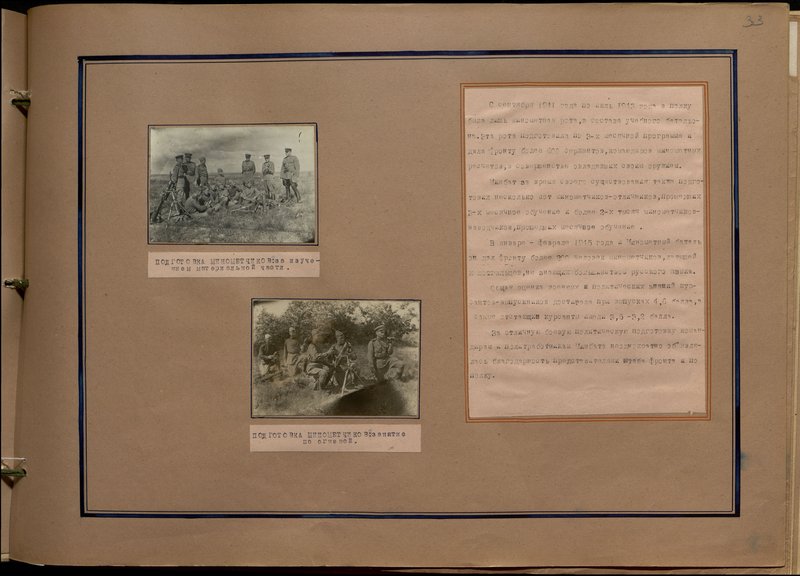 33
ПОДГОТОВКА МИНОМЕТЧИКОВ:за изуче-
нием материальной части.
ПОДГОТОВКА МИНОМЕТЧИКОВ:занятие
по огневой.
С сентября 1941 года по 1943 года в полку
была лишь минометная рота,в составе учебного батальо-
на.Эта рота подготовила по 3-х месячной программе и
дала фронту более сержантов,командиров минометных
расчетов,в совершенстве овладевших своим оружием.
Минбат за время своего существования также подго-
товил несколько сот минометчиков-отличников,прошедших
3-х месячное обучение и более 2-х тысяч минометчиков-
наводчиков,прошедших месячное обучение .
В январе - феврале 1943 года Минометный баталь-
он дал фронту более 200 человек минометчиков,латышей
и эстонцев,не знающих большинство русского языка.
Общая оценка боевых и политических знаний кур-
сантов-выпускников достигала при выпусках 4,6 балла,а
самые отстающие курсанты имели 3,5 -3,2 балла.
За отличную боевую политическую подготовку коман-
дирам и политработникам Минбата неоднократно объявля-
лась благодарность представителями штаба фронта и по
полку.